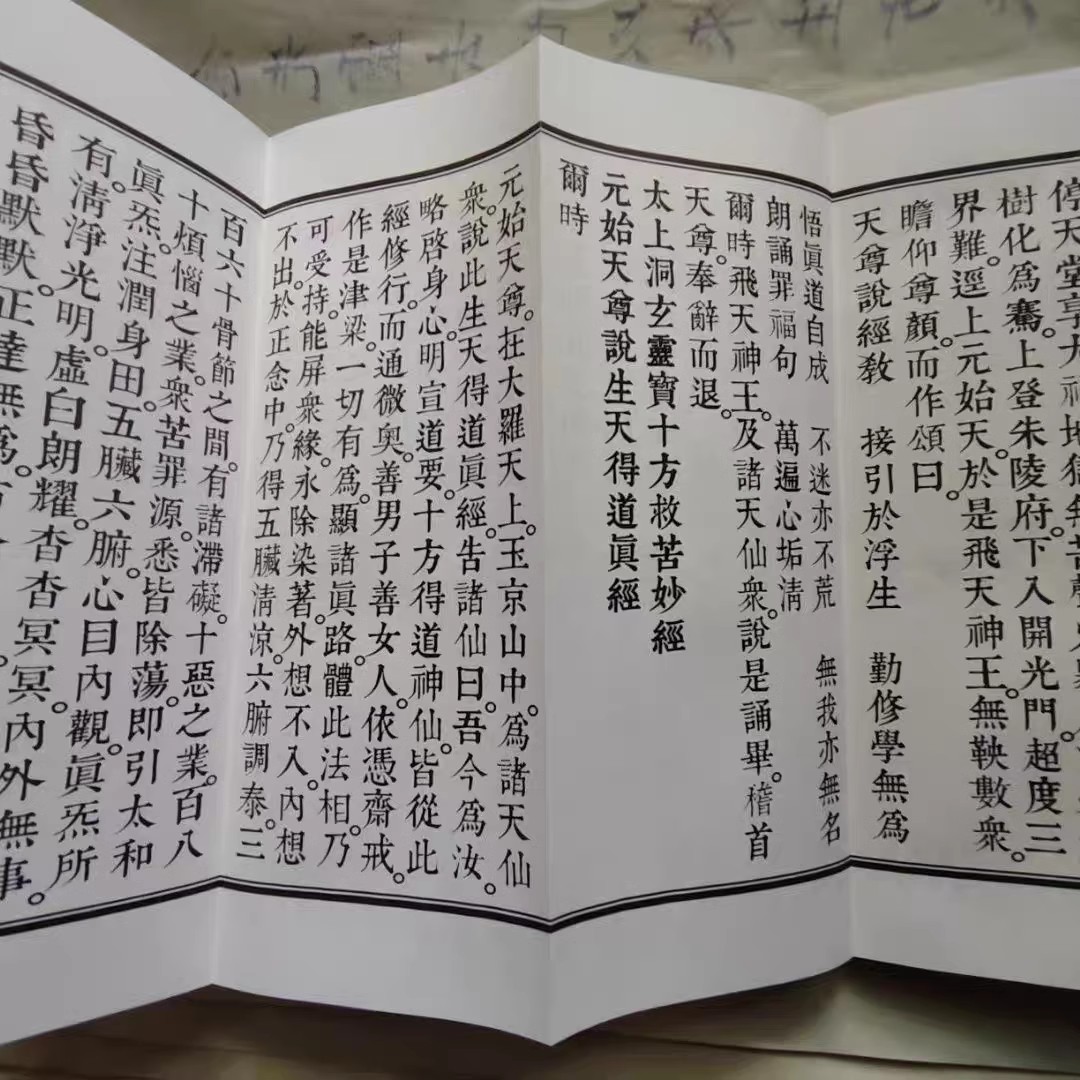 停天堂享大福地獄無苦
樹化爲騫。上登朱陵府。下入開光門。超度三
界難。逕上元始天。於是飛天神王。無鞅數衆。
瞻仰尊顏。而作頌曰。
天尊說經敎 接引於浮生 勤修學無爲
悟眞道自成 不迷亦不荒 無我亦無名
朗誦罪福句 萬遍心垢清
爾時飛天神王。及諸天仙衆。說是誦畢。稽首
天尊。奉辭而退。
太上洞玄靈寶十方救苦妙經
元始天尊說生天得道眞經
爾時
元始天尊。在大羅天上。玉京山中。爲諸天仙
衆。說此生天得道眞經。告諸仙曰。吾今爲汝。
略啓身心。明宣道要。十方得道神仙。皆從此
經修行。而通微奧。善男子善女人。依憑齋戒。
作是津梁。一切有爲。顯諸眞路。體此法相。乃
可受持。能屏衆緣。永除染著。外想不入。內想
不出。於正念中。乃得五臟清涼。六腑調泰。三
百六十骨節之間。有諸滯礙。十惡之業。百八
十煩惱之業。衆苦罪源。悉皆除蕩。即引太和
眞炁。注潤身田。五臟六腑。心目內觀。眞炁所
有。清淨光明。虛白朗耀。杳杳冥冥。內外無事。
昏昏默默。正達無爲。